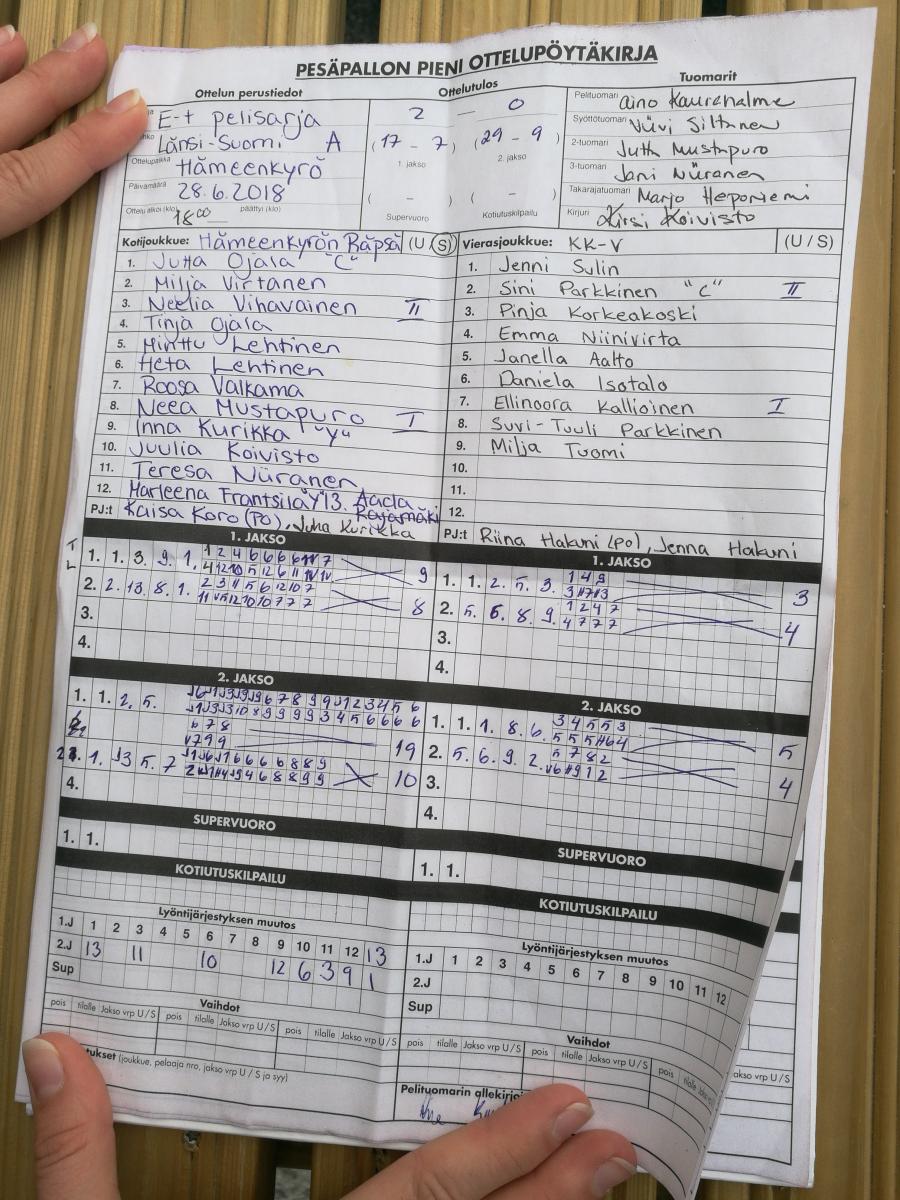 PESÄPALLON PIENI OTTELUPÖYTÄKIRJA
Ottelun perustiedot Ottelutulos Tuomarit
E-t pelisarja 2 — 0 Pelituomari Aino Kaurahalme
Länsi-Suomi A (17 - 7) (29 - 9) Syöttötuomari Viivi Siltanen
1. jakso 2. jakso
Ottelupaikka Hämeenkyrö 2-tuomari Jutta Mustapuro
Päivämäärä 28.6.2018 ( - ) ( - ) 3-tuomari Jani Niiranen
Takarajatuomari Marjo Heponiemi
Ottelu alkoi (klo) 18 00 päättyi (klo) Supervuoro Kotiutuskilpailu Kirjuri Kirsi Koivisto
Kotijoukkue: Hämeenkyrön Räpsä (U/S) Vierasjoukkue: KK-V (U / S)
1. Jutta Ojala "C" 1. Jenni Sulin
2. Milja Virtanen 2. Sini Parkkinen "C" II
3. Neelia Vihavainen II 3. Pinja Korkeakoski
4. Tinja Ojala 4. Emma Niinivirta
5. Minttu Lehtinen 5. Janella Aalto
6. Heta Lehtinen 6. Daniela Isotalo
7. Roosa Valkama 7. Ellinoora Kallioinen I
8. Neea Mustapuro I 8. Suvi-Tuuli Parkkinen
9. Inna Kurikka "Y" 9. Milja Tuomi
10. Juulia Koivisto 10.
11. Teresa Niiranen 11.
12. Marleena Frantsila "Y" 13. Aada Rajamäki 12.
PJ:t Kaisa Koro (PO), Juha Kurikka PJ:t Riina Hakuni (PO), Jenna Hakuni
1. JAKSO 1. JAKSO
1. 1. 3. 9. 1. 9 1. 1. 2. 5. 3. 3
2. 2. 13. 8. 1. 8 2. 5. 6. 8. 9. 4
3. 3.
4. 4.
2. JAKSO 2. JAKSO
1. 1. 2. 5. 19 1. 1. 1. 8. 6. 5
1. 13 5. 7 10 2. 5. 6. 9. 2. 4
3.
4. 4.
SUPERVUORO SUPERVUORO
1. 1. 1. 1.
KOTIUTUSKILPAILU KOTIUTUSKILPAILU
Lyöntijärjestyksen muutos Lyöntijärjestyksen muutos
1.J 1 2 3 4 5 6 7 8 9 10 11 12 13 1.J 1 2 3 4 5 6 7 8 9 10 11 12
2.J 13 11 10 12 6 3 9 1 2.J
Sup Sup
Vaihdot Vaihdot
pois tilalle Jakso vrp U/S pois tilalle Jakso vrp U/S pois tilalle Jakso vrp U/S pois tilalle Jakso vrp U/S pois tilalle Jakso vrp U/S pois
(joukkue, pelaaja nro, jakso vrp U/S ja syy)
Pelituomarin